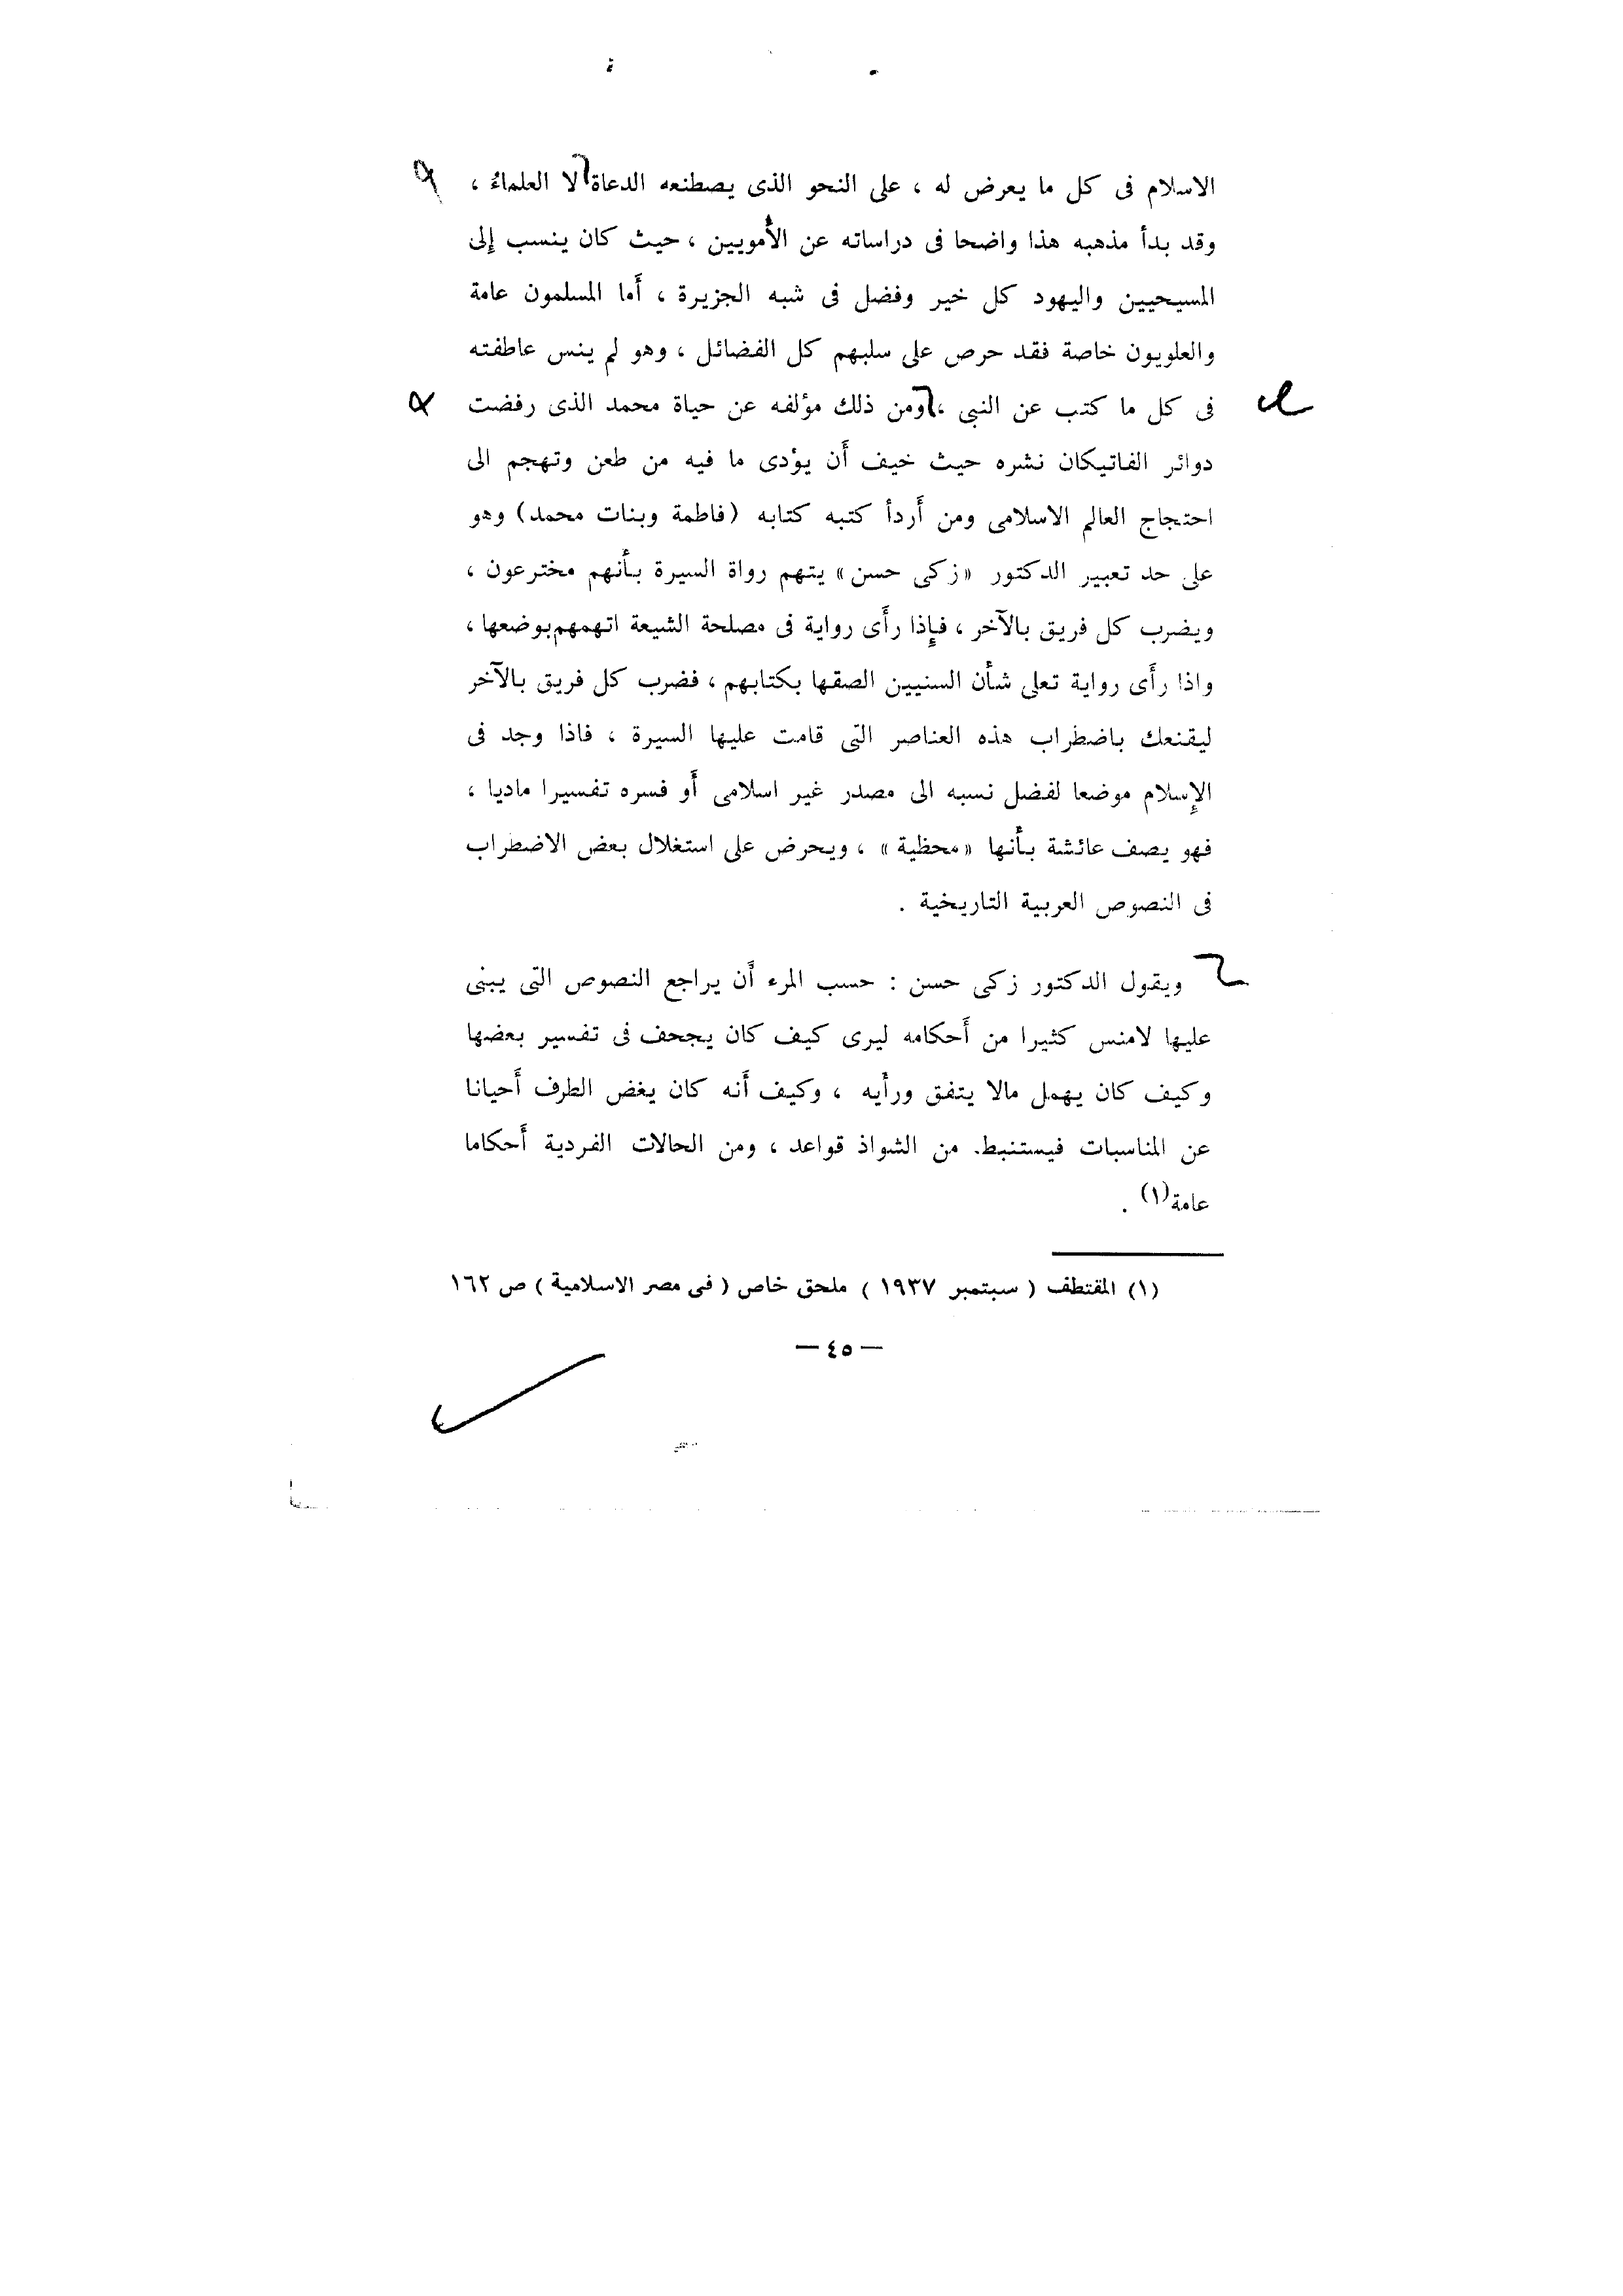 الاسلام فى كل ما يعرض له ، على النحو الذى يصطنعه الدعاة لا العلماءُ ،
وقد بدأ مذهبه هذا واضحا فى دراساته عن الأُمويين ، حيث كان ينسب إلى
المسيحيين واليهود كل خير وفضل فى شبه الجزيرة ، أَما المسلمون عامة
والعلويون خاصة فقد حرص على سلبهم كل الفضائل ، وهو لم ينس عاطفته
فى كل ما كتب عن النبى ، ومن ذلك مؤلفه عن حياة محمد الذى رفضت
دوائر الفاتيكان نشره حيث خيف أَن يؤدى ما فيه من طعن وتهجم الى
احتجاج العالم الاسلامى ومن أَردأ كتبه كتابه (فاطمة وبنات محمد) وهو
على حد تعبير الدكتور «زكى حسن» يتهم رواة السيرة بأنهم مخترعون ،
ويضرب كل فريق بالآخر ، فإِذا رأَى رواية فى مصلحة الشيعة اتهمهم بوضعها ،
واذا رأَى رواية تعلى شأن السنيين الصقها بكتابهم ، فضرب كل فريق بالآخر
ليقنعك باضطراب هذه العناصر التى قامت عليها السيرة ، فاذا وجد فى
الإِسلام موضعا لفضل نسبه الى مصدر غير اسلامى أَو فسره تفسيرا ماديا ،
فهو يصف عائشة بأنها «محظية» ، ويحرض على استغلال بعض الاضطراب
فى النصوص العربية التاريخية .
ويقول الدكتور زكى حسن : حسب المرء أَن يراجع النصوص التى يبنى
عليها لامنس كثيرا من أَحكامه ليرى كيف كان يجحف فى تفسير بعضها
وكيف كان يهمل مالا يتفق ورأيه ، وكيف أَنه كان يغض الطرف أَحيانا
عن المناسبات فيستنبط. من الشواذ قواعد ، ومن الحالات الفردية أَحكاما
عامة(١) .
(١) المقتطف ( سبتمبر ١٩٣٧ ) ملحق خاص ( فى مصر الاسلامية ) ص ١٦٢
— ٤٥ —